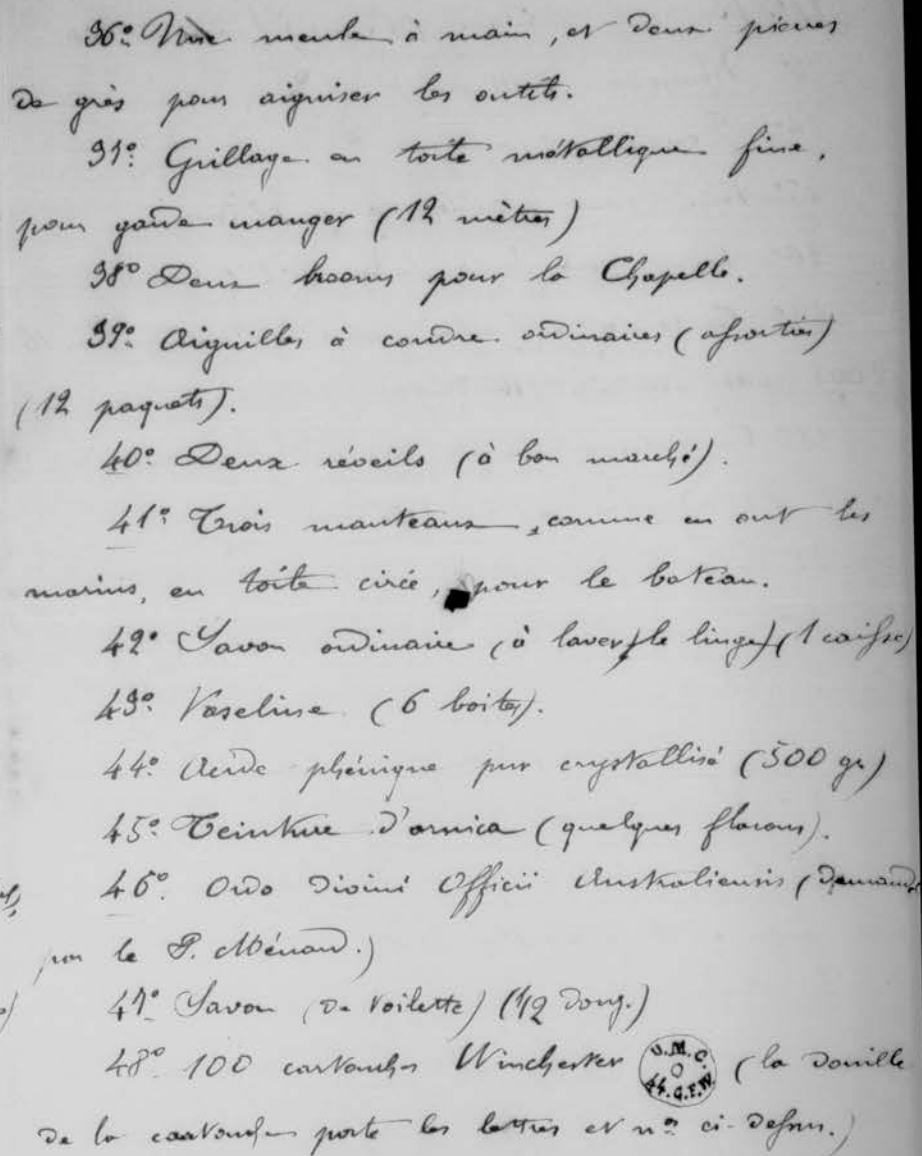 36° Une meule à main, et deux pierres
de grès pour aiguiser les outils.
37° Grillage en toile métallique fine,
pour garde manger (12 mètres)
38° Deux brooms pour la Chapelle.
39° Aiguilles à coudre ordinaires (assorties)
(12 paquets).
40° Deux réveils (à bon marché).
41° Trois manteaux, comme en ont les
marins, en toile cirée, pour le bateau.
42° Savon ordinaire (à laver le linge) (1 caisse)
43° Vaseline (6 boites).
44° Acide phénique pur crystallisé (500 gr)
45° Teinture d'arnica (quelques flacons).
46° Ordo Divini Officii Australiensis (demandé
par le P. Ménard.)
47° Savon (de toilette) (1/2 douz.)
48° 100 cartouches Winchester U.M.C. 44.C.F.W. (la douille
de la cartouche porte les lettres et nos ci-dessus.)